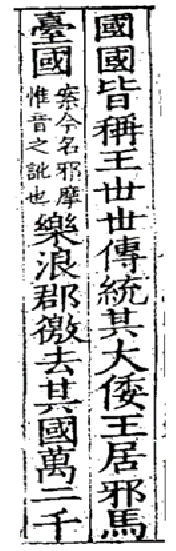 國國皆稱王世世傳統其大倭王居邪馬
臺國案今名邪摩惟音之訛也樂浪郡徼去其國萬二千